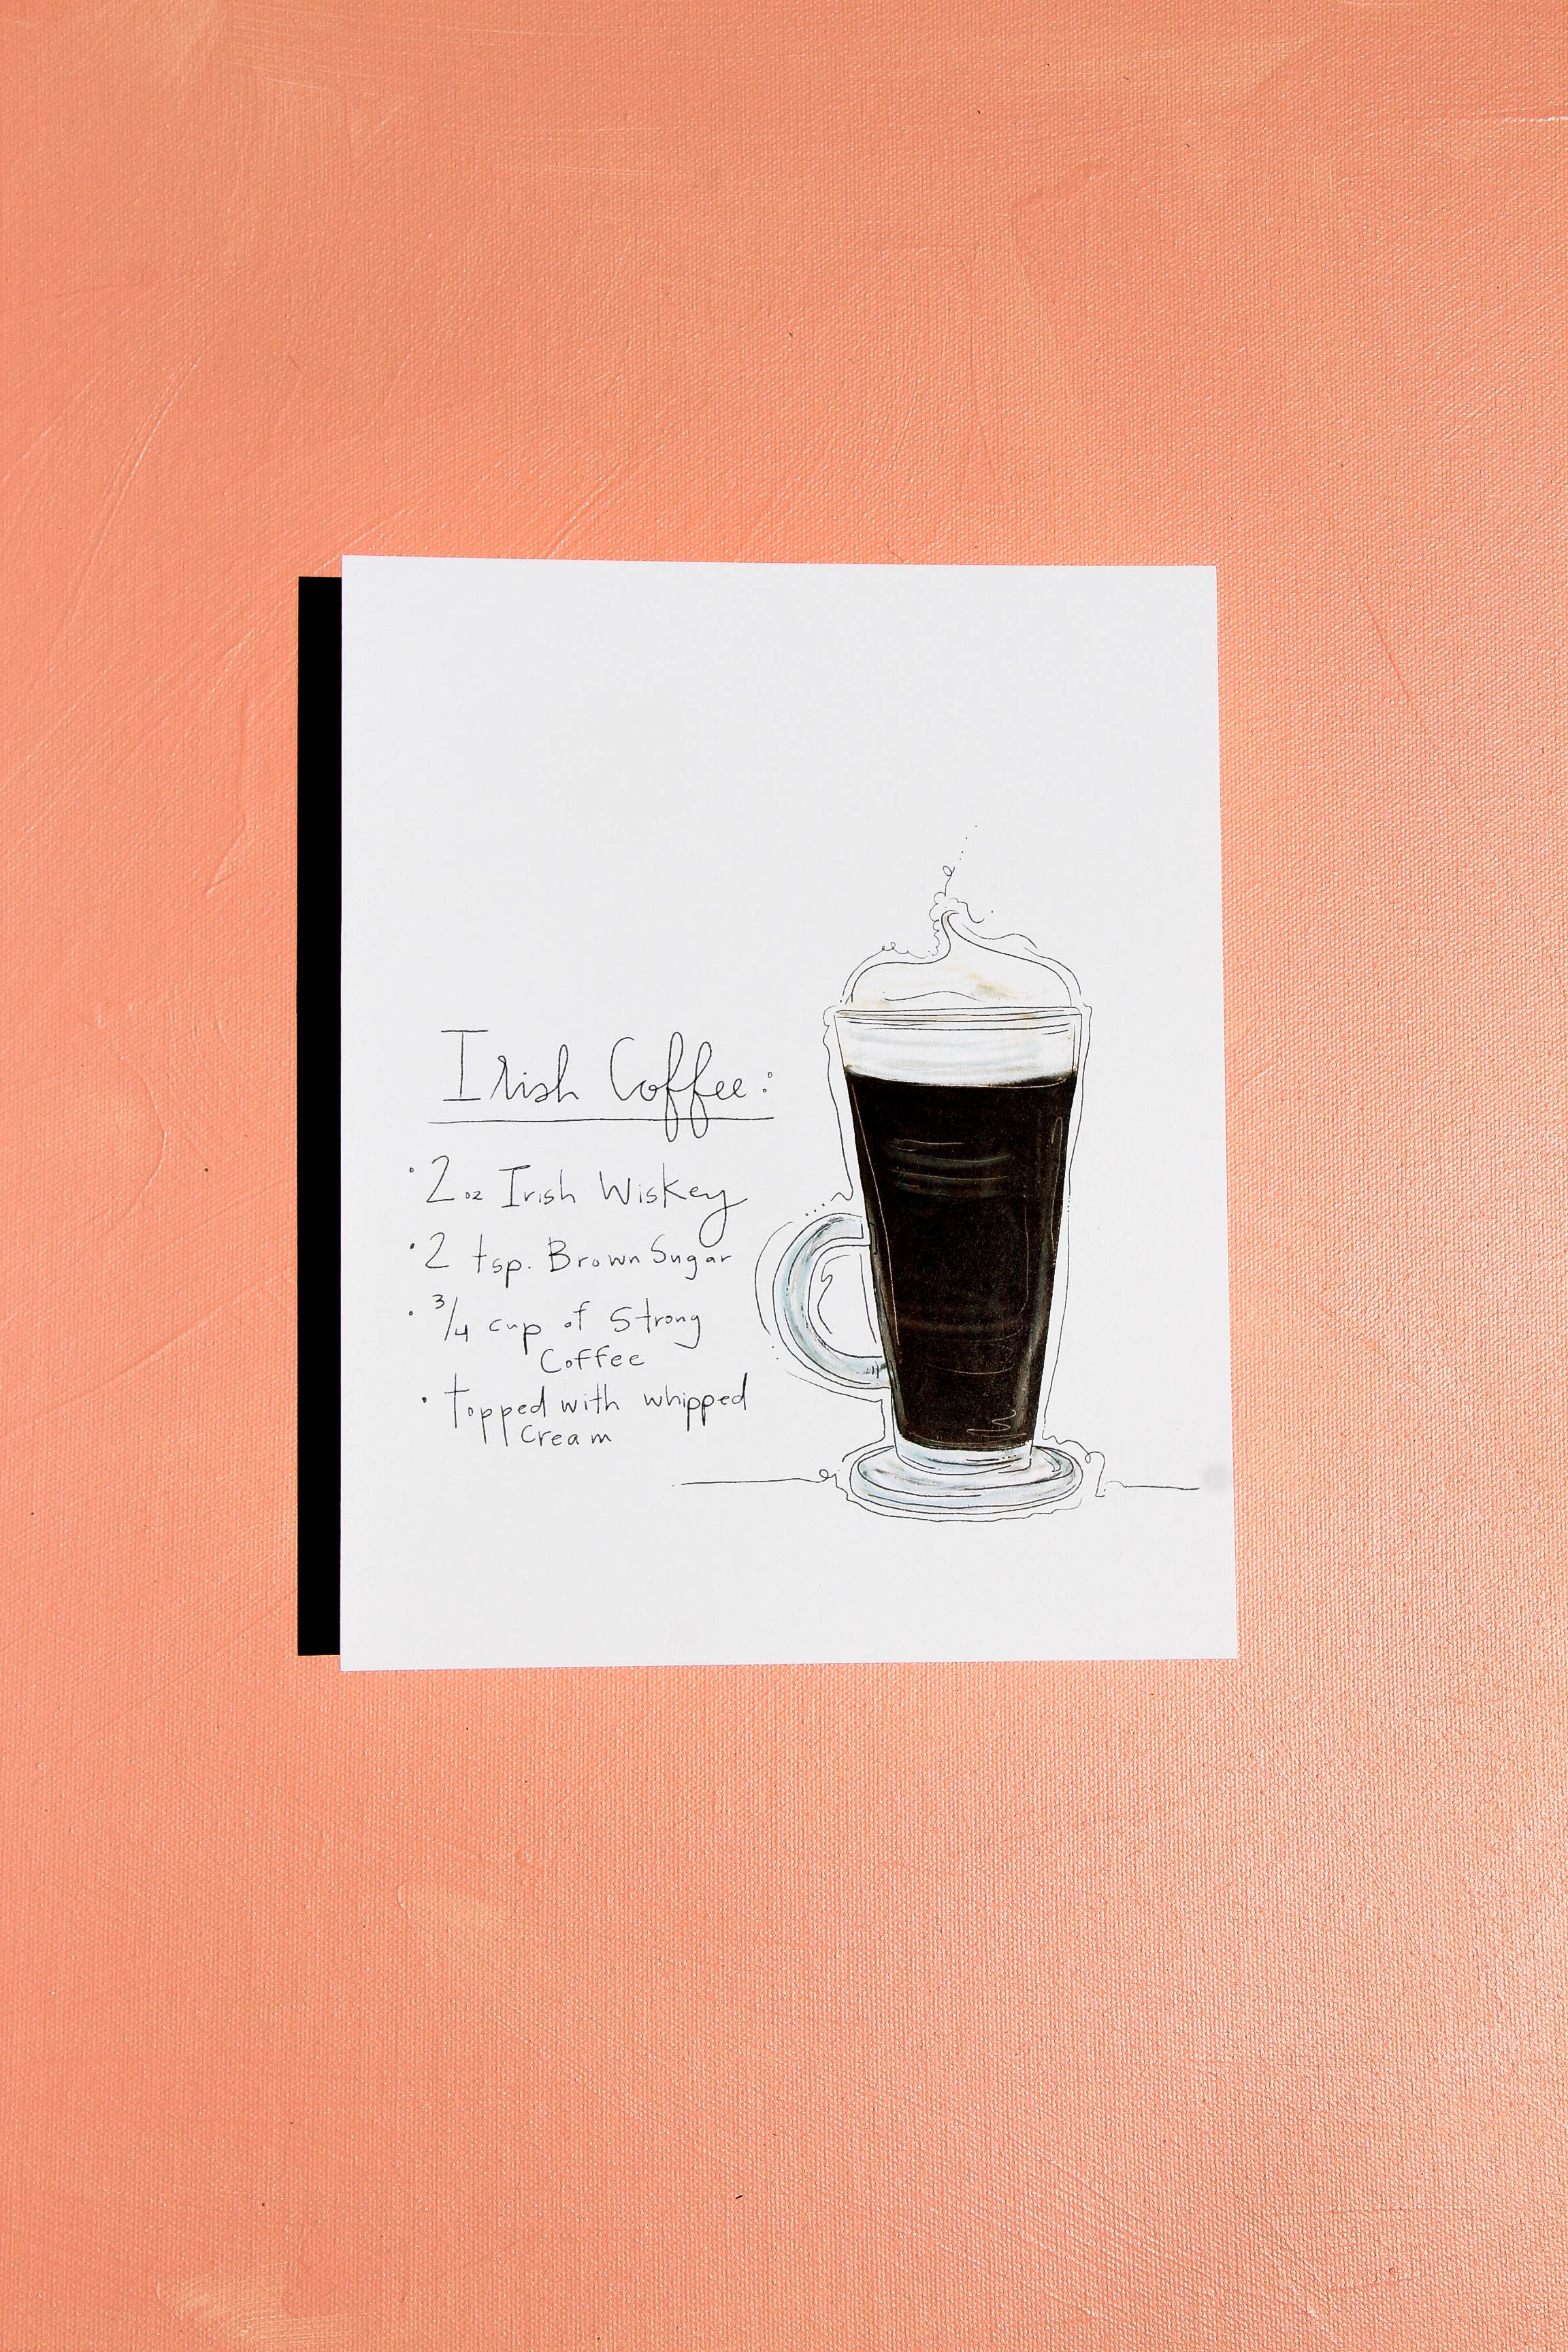 Irish Coffee:
• 2 oz Irish Wiskey
• 2 tsp. Brown Sugar
• 3/4 cup of Strong
Coffee
• topped with whipped
Cream